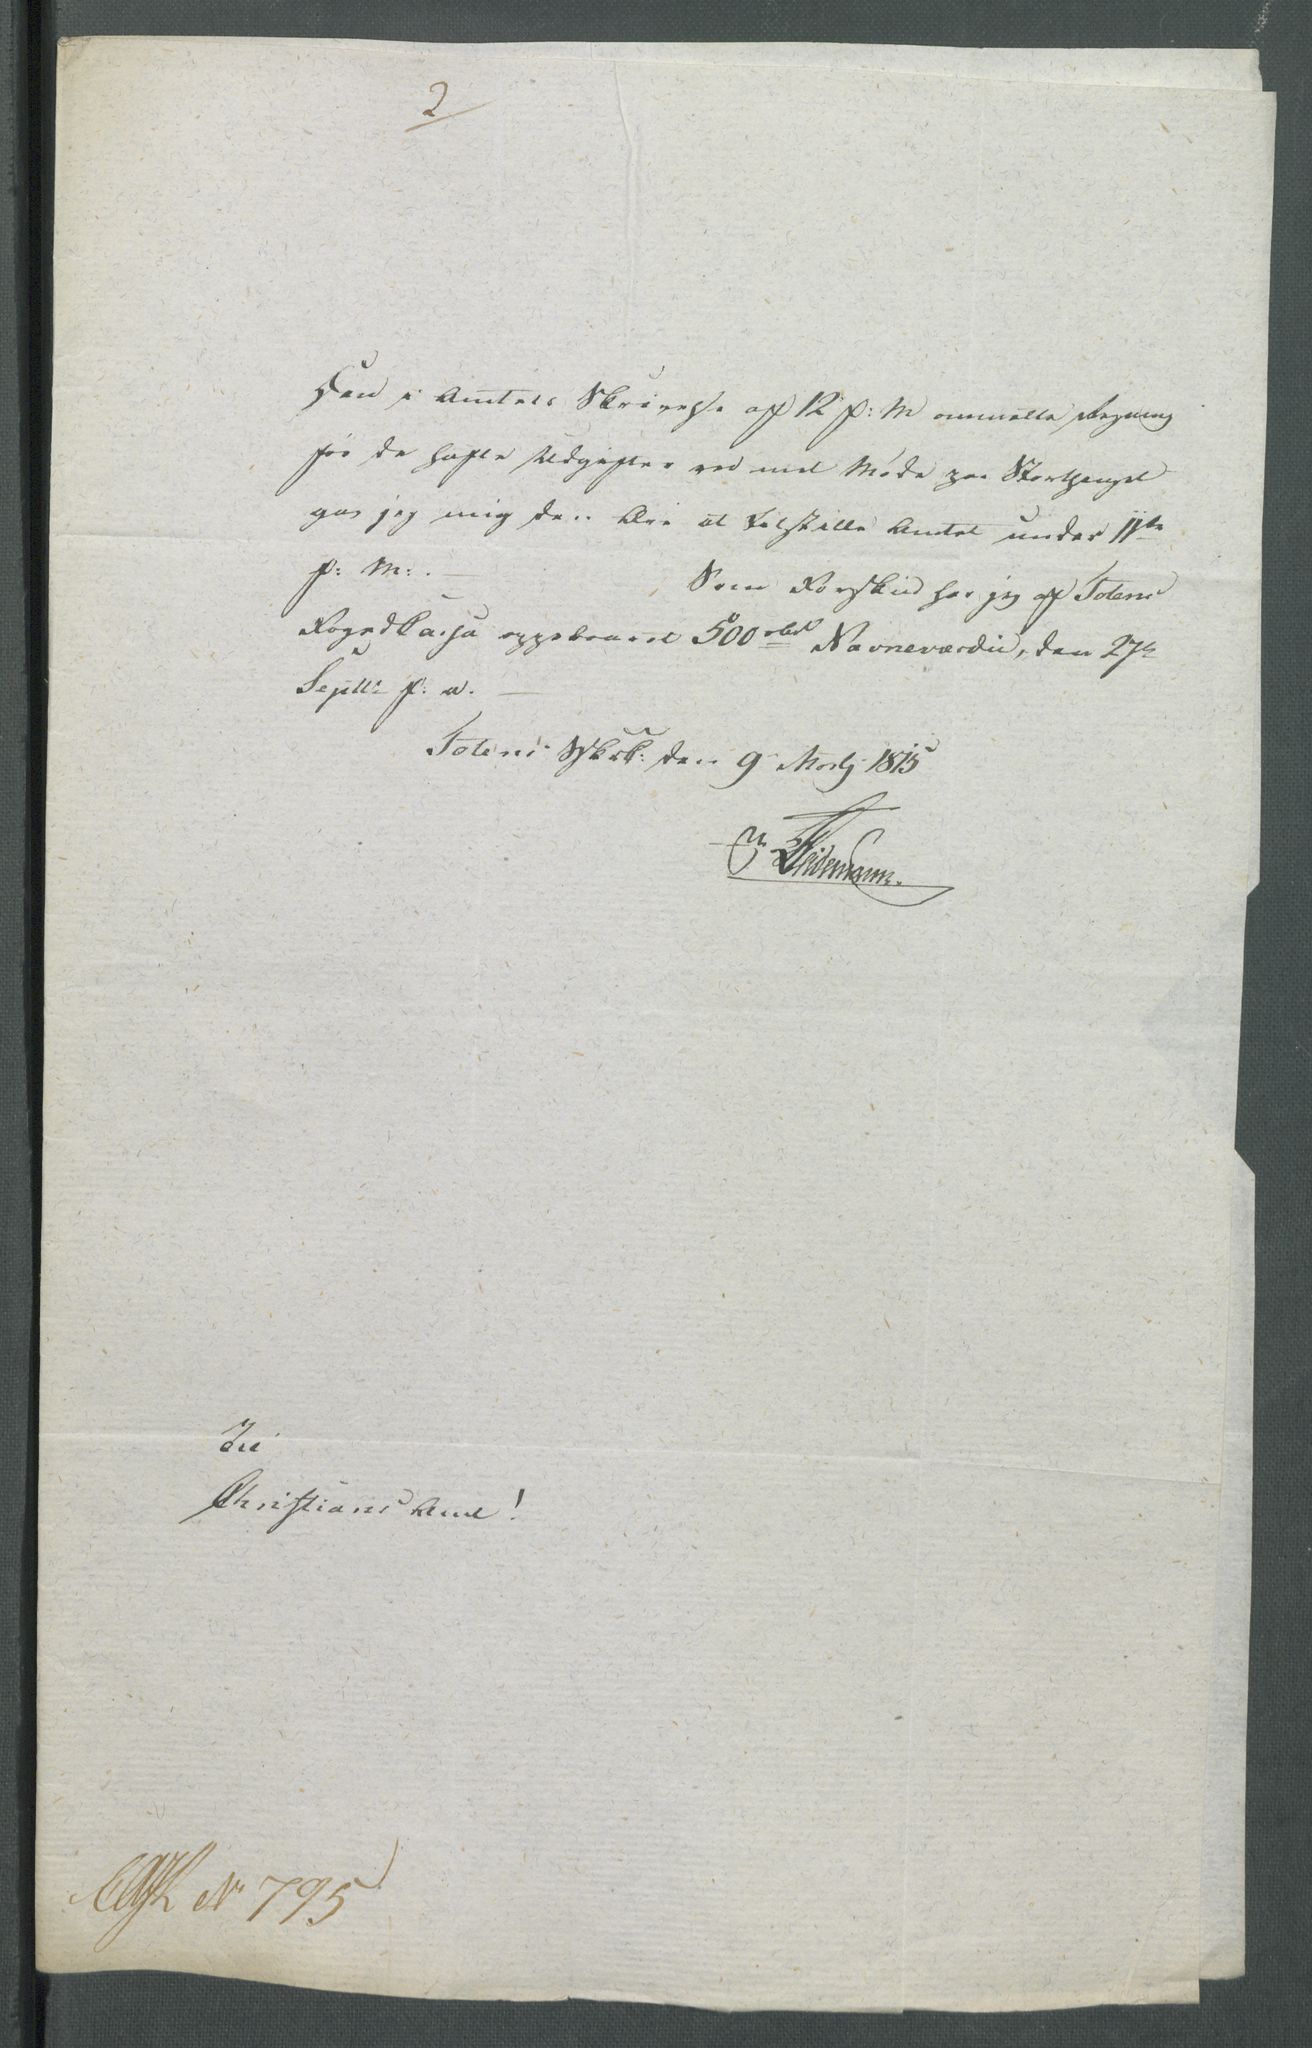 2
Den i Amtets Skrivelse af 12 f: M ommeldte Regning
for de hafte Udgifter ved mit Møde paa Storthinget
gav jeg mig den Ære at tilstille Amtet under 11te
f: M: . —
Som Forskud har jeg af Totens
Fogedkassa oppebaaret 500 rbd Navneværdie, den 27de
Septbr f: a. —
Totens Skrk: den 9 Marts 1815
Weidemann.
Til
Christians Amt!
No 795